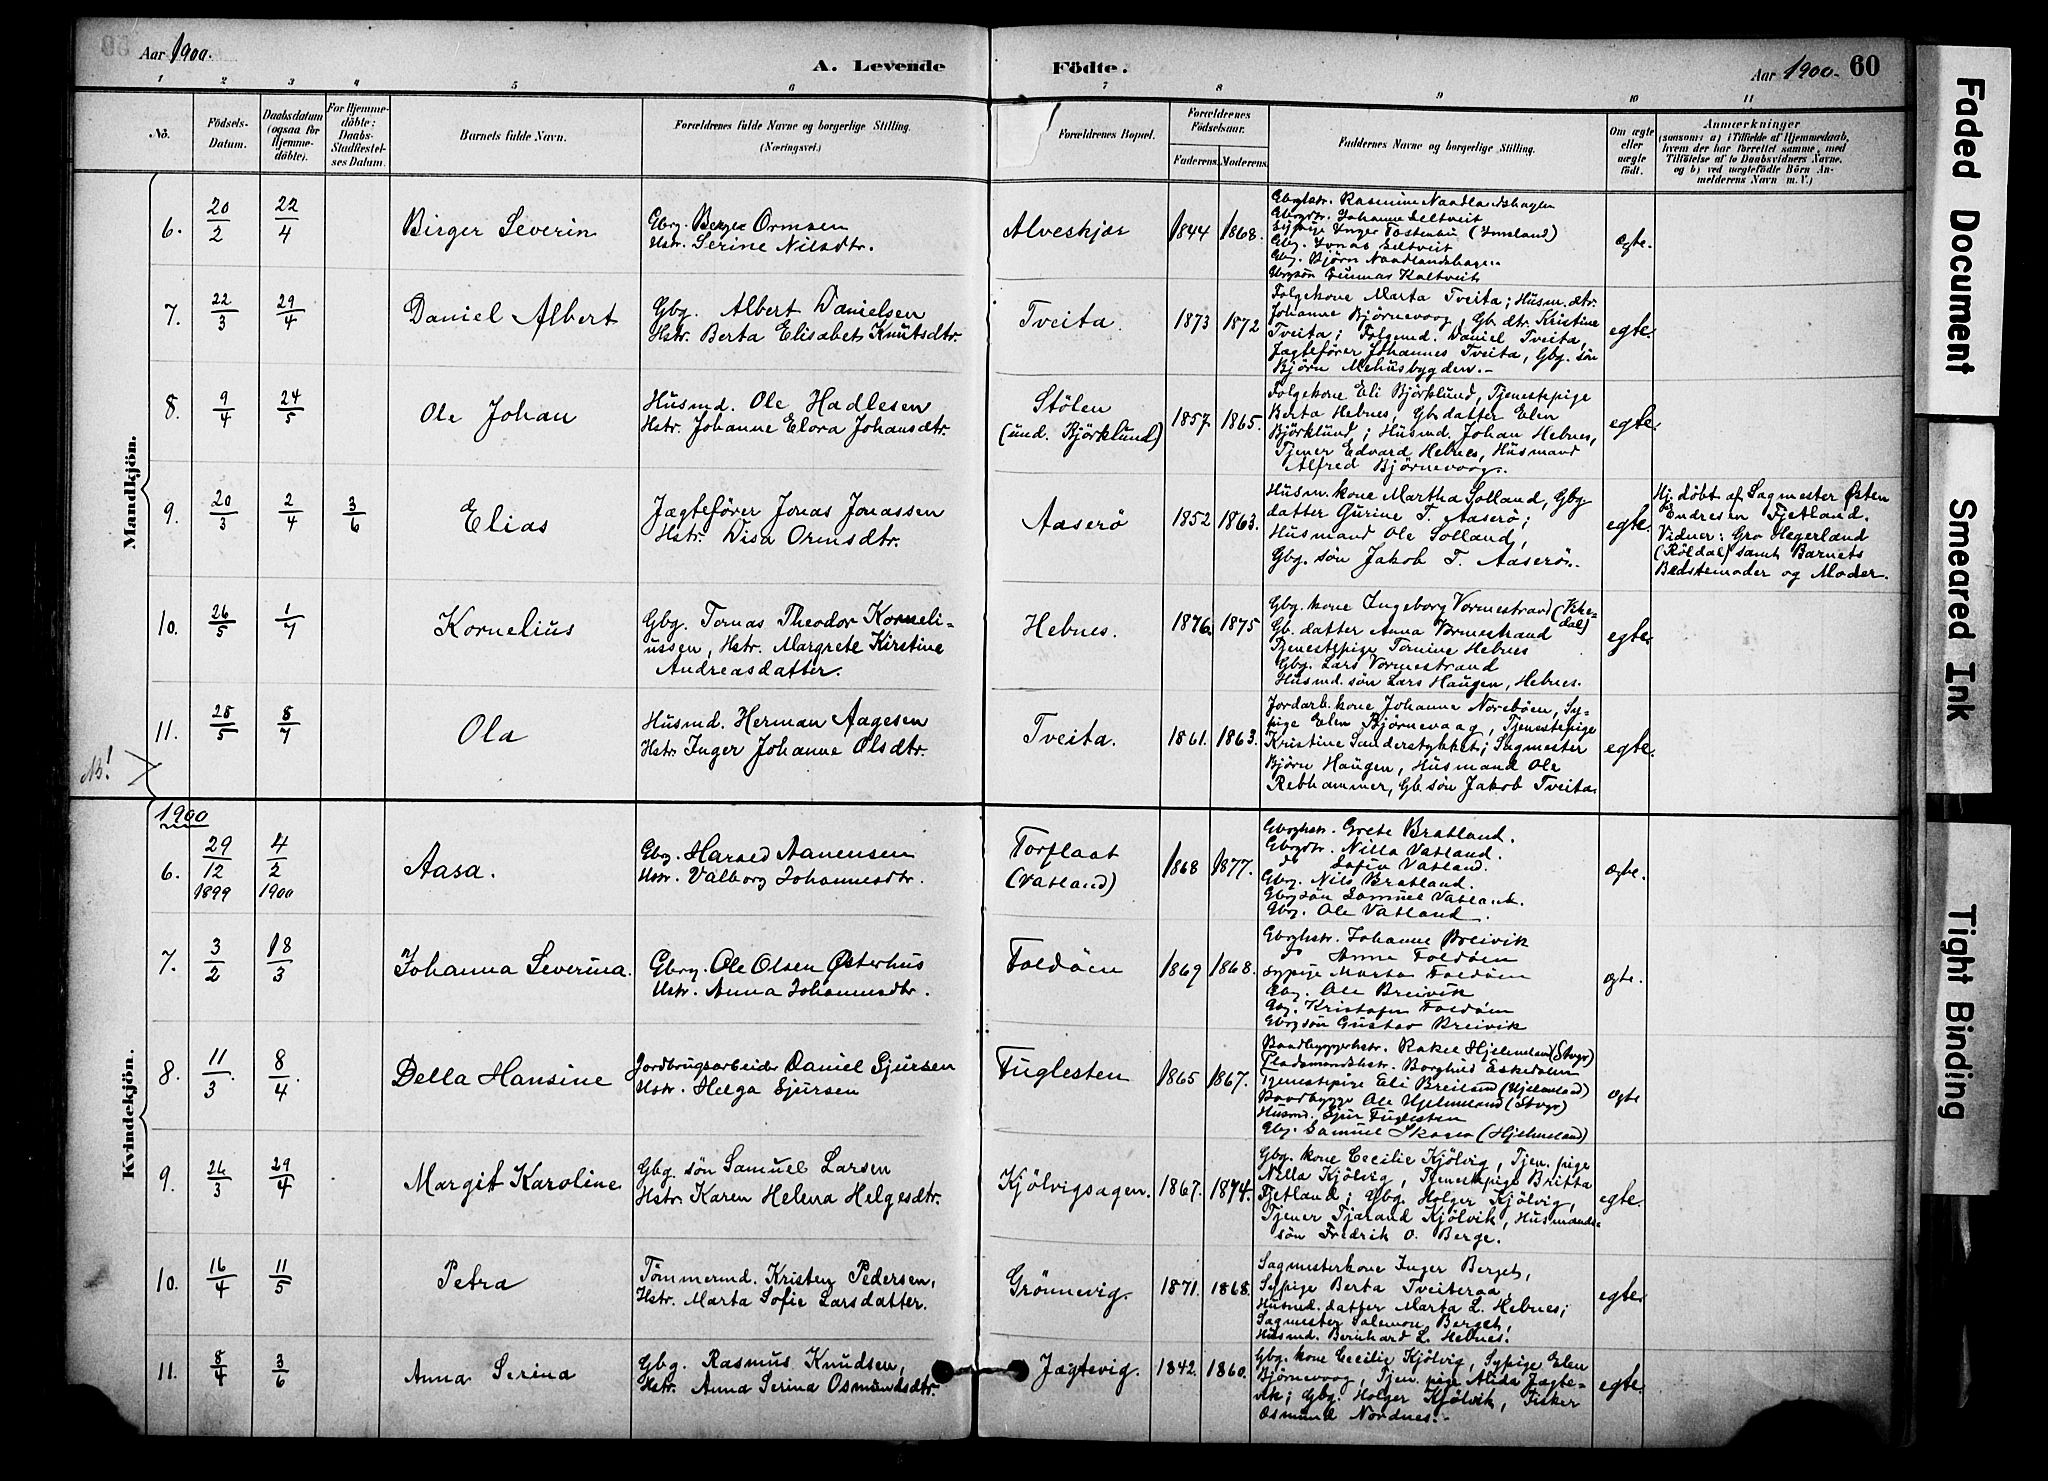 Aar 1900.
A. Levende Födte.
Aar 1900.
60
1 2 3 4 5 6 7 8 9 10 11
No.
Födsels-Datum.
Daabsdatum (ogsaa for Hjemme-döbte).
For Hjemme-döbte: Daabs-Stadfestel-ses Datum.
Barnets fulde Navn.
Forældrenes fulde Navne og borgerlige Stilling.
(Næringsvei.)
Forældrenes Bopæl.
Forældrenes Födselsaar.
Faderens. Moderens.
Faddernes Navne og borgerlige Stilling.
Om ægte eller uægte födt.
Anmærkninger
(saasom: a) i Tilfælde af Hjemmedaab,
hvem der har forrettet samme, med
Tilföielse af to Daabsvidners Navne,
og b) ved uægtefödte Börn An-
melderens Navn m. V.)
Mandkjön.
6. 20/2 22/4 Birger Severin
Gbrg. Berge Ormsen
Hstr. Serine Nilsdtr.
Alveskjær 1844 1868.
Gbrghstr. Rasmine Naadlandshagen
Gbrgdtr. Johanne Eeltveit
Sypige Inger Tostenbu (Imsland)
Gbg. Jonas Eeltveit
Gbg. Bjørn Naadlandshagen
Gbrgsön Gunnar Kaltveit
ægte.
7. 22/3 29/4 Daniel Albert
Gbg. Albert Danielsen
Hstr. Berta Elisabet Knutsdtr.
Tveita. 1873 1872
Folgekone Marta Tveita; Husm. dtr.
Johanne Bjørnevaag, Gb. dtr. Kristine
Tveita; Folgemd. Daniel Tveita,
Jægtefører Johannes Tveita, Gbg. søn
Bjørn Mehusbygden.-
egte.
8. 9/4 24/5 Ole Johan
Husmd. Ole Hadlesen
Hstr. Johanne Elora Johansdtr.
Stölen
(und. Björklund) 1857. 1865.
Folgekone Eli Björklund, Tjenestepige
Berta Hebnes, Gb. datter Elen
Björklund; Husmd. Johan Hebnes,
Tjener Edvard Hebnes, Husmand
Alfred Bjørnevaag.
egte.
9. 20/3 2/4 3/6 Elias
Jægtefører Jonas Jonassen
Hstr. Disa Ormsdtr.
Aaserö 1852 1863.
Husm. kone Martha Solland, Gbg.
datter Gurine T. Aaserö;
Husmand Ole Solland,
Gbg. søn Jakob T. Aaserö.
egte.
Hj. döbt af Sagmester Østen
Endresen Fjetland.
Vidner: Gro Hegerland
(Röldal) samt Barnets
Bedstemoder og Moder.
10. 26/5 1/7 Kornelius
Gbg. Tornas Theodor Korneli-
ussen, Hstr. Margrete Kirstine
Andreasdatter.
Hebnes. 1876. 1875
Gbg. kone Ingeborg Vormestrand (Vike-
dal)
Gb. datter Anna Vormestrand
Tjenestepige Tornine Hebnes
Gbg. Lars Vormestrand
Husmd. søn Lars Haugen, Hebnes.
egte.
11. 28/5 8/7 Ola
Husmd. Herman Aagesen
Hstr. Inger Johanne Olsdtr.
Tveita. 1861. 1863.
Jordarb. kone Johanne Noreböen, Sy-
pige Elen Bjørnevaag, Tjenestepige
Kristine Sanderstykket; Sagmester
Bjørn Haugen, Husmand Ole
Rebhammer, Gb. søn Jakob Tveita
egte.
NB!
Kvindekjön.
1900
6. 29/12 1899 4/2 1900 Aasa.
Gbg. Harald Aanensen
Hstr. Valborg Johannesdtr.
Torflaat
(Vatland) 1868 1877.
Gbrghstr. Grete Bratland.
Gbrgdtr. Nilla Vatland.
do Sofie Vatland.
Gbrg. Nils Bratland.
Gbrgsön Samuel Vatland.
Gbrg. Ole Vatland.
ægte.
7. 3/2 18/3 Johanna Severina.
Gbrg. Ole Olsen Østerhus
Hstr. Anna Johannesdtr.
Foldöen 1869 1868.
Gbrghstr. Johanne Breivik
do Anne Foldöen
Sypige Marta Foldöen
Gbg. Ole Breivik
Gbg. Kristofer Foldöen
Gbrgsön Gustav Breivik
ægte.
8. 11/3. 8/4. Della Hansine
Jordbrugsarbeider Daniel Sjursen
Hstr. Helga Sjursen
Fuglesten 1865 1867.
Baadbyggerhstr. Rakel Hjelmeland (Stvgr)
Pladsmandshstr. Borghild Eskedalen
Tjenestepige Eli Breiland (Hjelmeland)
Baadbygge Ole Hjelmeland (Stvgr)
Husmd. Sjur Fuglesten
Gbg. Samuel Skogen (Hjelmeland)
ægte
9. 26/3 29/4 Margit Karoline
Gbg. søn Samuel Larsen
Hstr. Karen Helena Helgesdtr.
Kjölvigsagen. 1867. 1874.
Gbg. kone Cecilie Kjölvig, Tjen. pige
Nilla Kjölvig, Tjenestepige Britta
Fjetland; Gbg. Holger Kjölvig,
Tjener Tjærand Kjölvik, Husmands-
søn Fredrik O. Berge.
egte.
10. 16/4 11/5 Petra
Tömmermd. Kristen Pedersen,
Hstr. Marta Sofie Larsdatter.
Grönnevig. 1871. 1868.
Sagmesterkone Inger Berget,
Sypige Berta Tveiteraa,
Husmd. datter Marta L. Hebnes;
Sagmester Salemon Berget,
Husmd. Bernhard L. Hebnes.
egte.
11. 8/4 3/6 Anna Serina
Gbg. Rasmus Knudsen,
Hstr. Anna Serina Osmundsdtr.
Jægtevig. 1842. 1860.
Gbg. kone Cecilie Kjölvig, Sypige Elen
Bjørnevaag, Tjen. pige Alida Jægte-
vik; Gbg. Holger Kjölvik, Fisker
Osmund Nordnes.-
egte.
Faded Document
Smeared Ink
Tight Binding